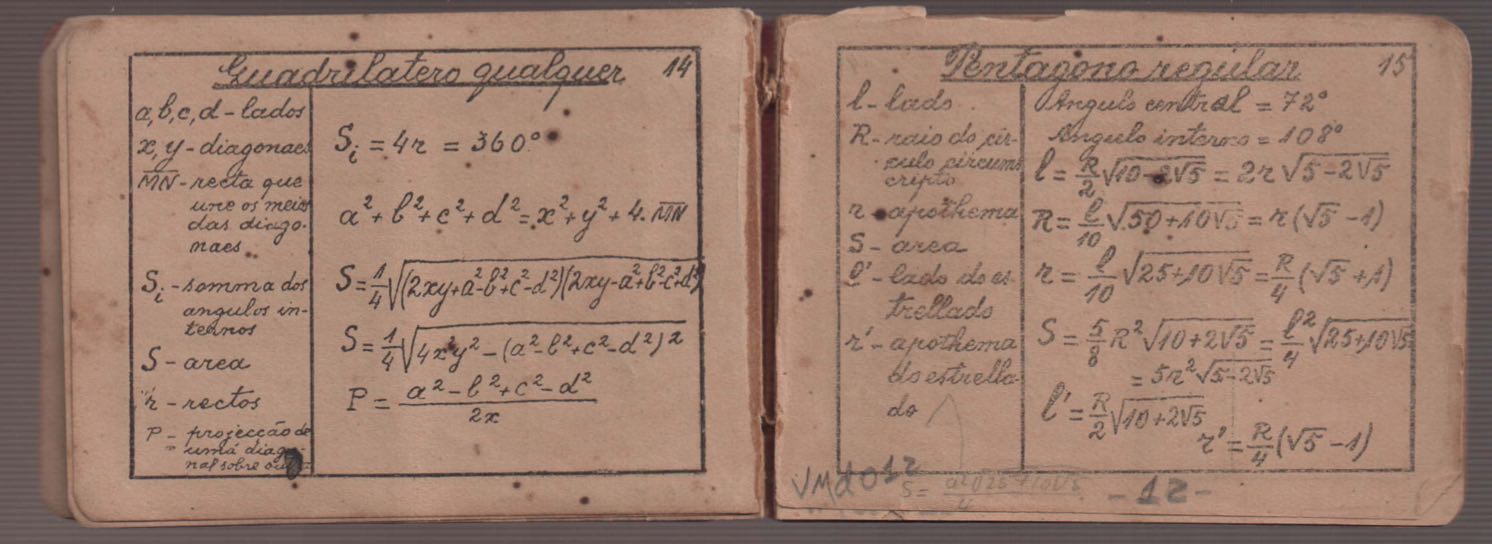 Quadrilatero qualquer 14
a, b, c, d - lados
x, y - diagonaes
M̅N̅ - recta que
une os meios
das diago-
naes
Sᵢ - somma dos
angulos in-
ternos
S - area
r - rectos
P - projecção de
uma diago-
nal sobre outra
Sᵢ = 4r = 360°
a² + b² + c² + d² = x² + y² + 4. M̅N̅
S = 1/4 √(2xy+a²-b²+c²-d²)(2xy-a²+b²-c²+d²)
S = 1/4 √4x²y² - (a²-b²+c²-d²)²
P = a² - b² + c² - d² / 2x
Pentagono regular 15
l - lado
R - raio do cir-
culo circums
cripto
r - apothema
S - area
l' - lado do es-
trellado
r' - apothema
do estrella-
do
Angulo central = 72°
Angulo interno = 108°
l = R/2 √10-2√5 = 2r √5-2√5
R = l/10 √50+10√5 = r(√5 - 1)
r = l/10 √25+10√5 = R/4 (√5 + 1)
S = 5/8 R² √10+2√5 = l²/4 √25+10√5
= 5r² √5-2√5
l' = R/2 √10+2√5
r' = R/4 (√5 - 1)
S =
- 12 -